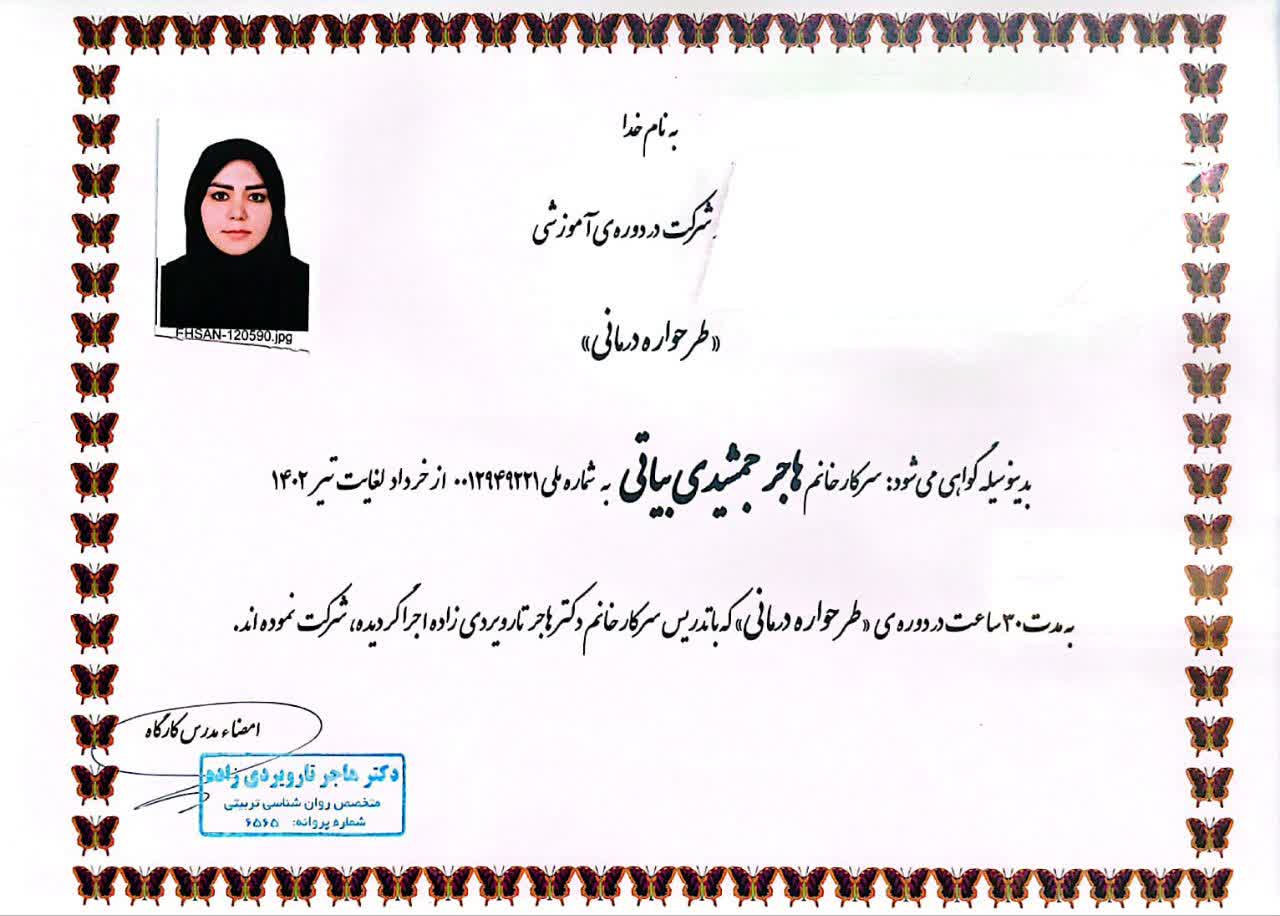 به نام خدا
شرکت در دوره ی آموزشی
«طرحواره درمانی»
بدینوسیله گواهی می شود: سرکار خانم هاجر جمشیدی بیاتی به شماره ملی ۰۰۱۲۹۴۹۲۲۱ از خرداد لغایت تیر ۱۴۰۲
به مدت ۳۰ ساعت در دوره ی «طرحواره درمانی» که با تدریس سرکار خانم دکتر هاجر تارویردی زاده اجرا گردیده، شرکت نموده اند.
امضاء مدرس کارگاه
دکتر هاجر تارویردی زاده
متخصص روان شناسی تربیتی
شماره پروانه: ۶۵۶۵
EHSAN-120590.jpg